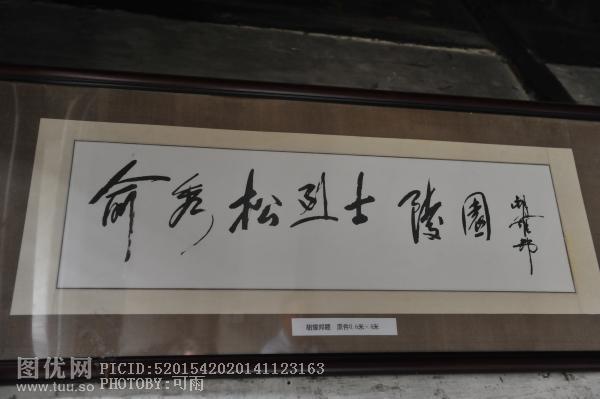 俞秀松烈士陵园
胡耀邦
胡耀邦题 原件0.6米×4米
图优网
www.tuu.so
PICID:5201542020141123163
PHOTOBY:可雨